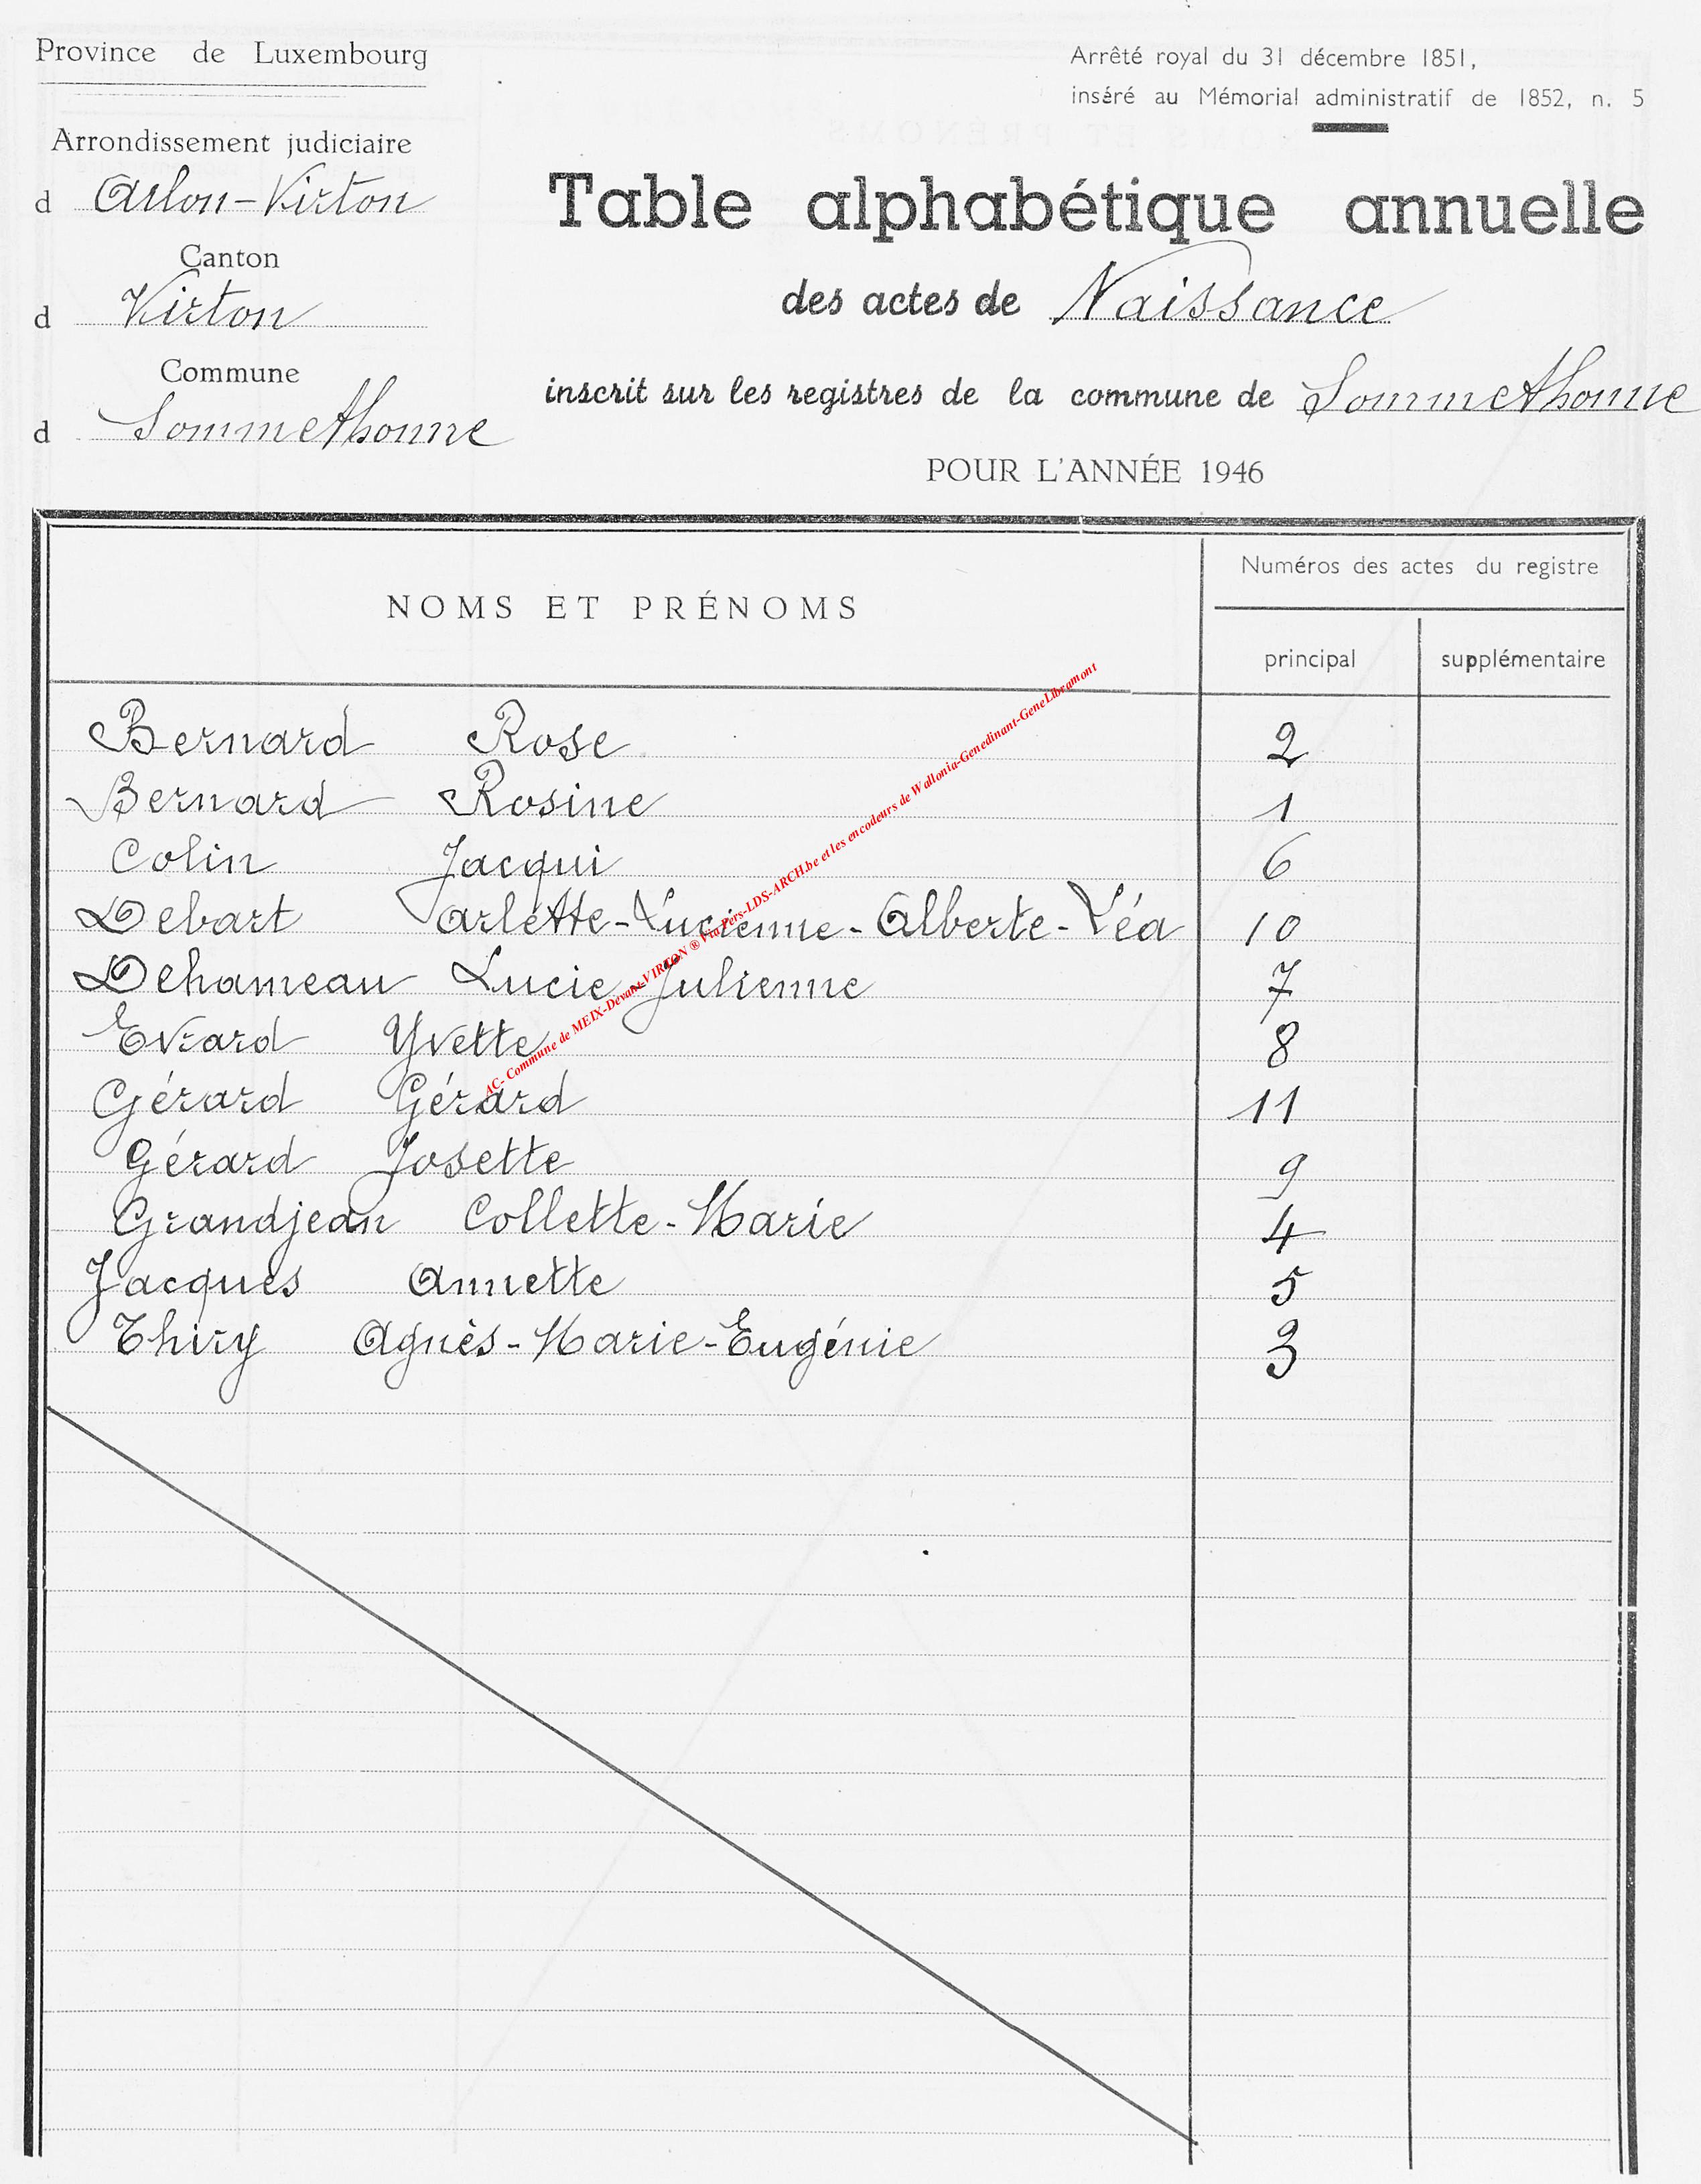 Province de Luxembourg
Arrondissement judiciaire
d Arlon-Virton
Canton
d Virton
Commune
d Sommethonne
Arrêté royal du 31 décembre 1851,
inséré au Mémorial administratif de 1852, n. 5
Table alphabétique annuelle
des actes de Naissance
inscrit sur les registres de la commune de Sommethonne
POUR L'ANNÉE 1946
NOMS ET PRÉNOMS
Numéros des actes du registre
principal supplémentaire
Bernard Rose 2
Bernard Rosine 1
Colin Jacqui 6
Debart Arlette-Lucienne-Alberte-Léa 10
Dehameau Lucie Julienne 7
Evrard Yvette 8
Gérard Gérard 11
Gérard Josette 9
Grandjean Collette-Marie 4
Jacques Annette 5
Thiry Agnès-Marie-Eugénie 3
AC- Commune de MEIX-Devant-VIRTON ® Via Pers-LDS-ARCH.be et les encodeurs de Wallonia-Genedinant-GeneLibramont